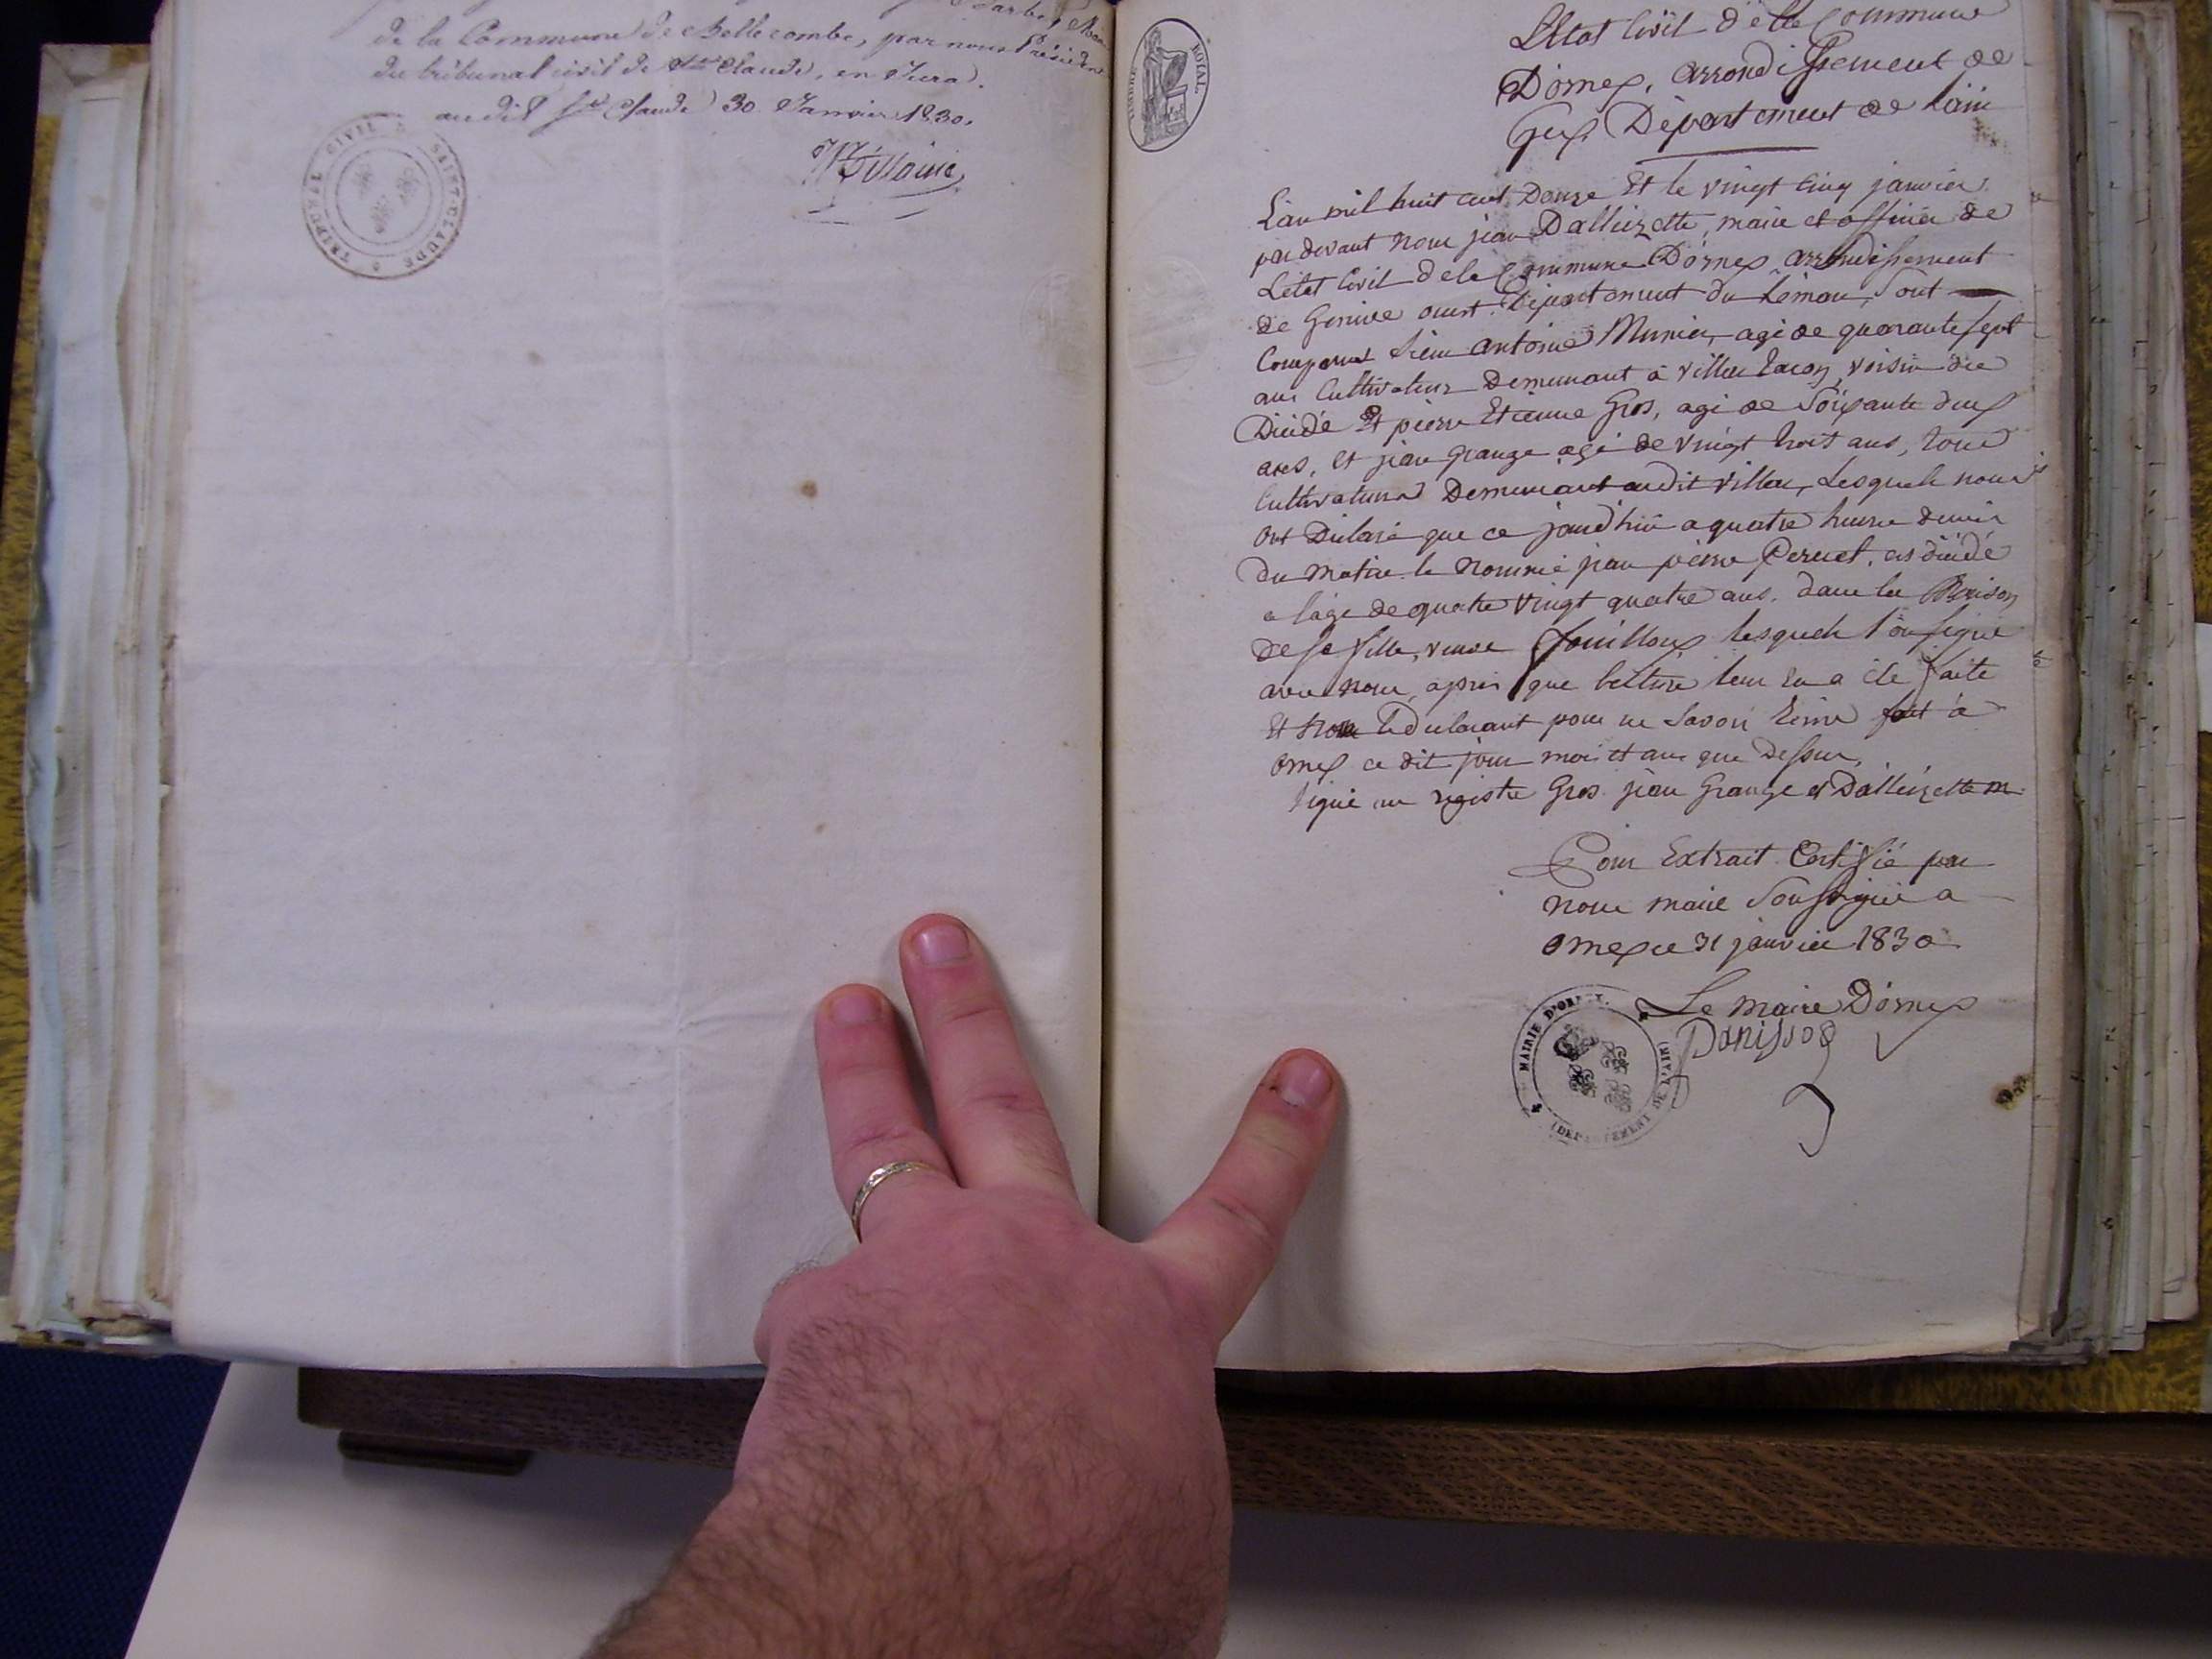 de la Commune de Bellecombe, par nous Président
du tribunal civil de St Claude, en Jura.
au dit St Claude 30 Janvier 1830.
TRIBUNAL CIVIL SAINT-CLAUDE
TIMBRE ROYAL
L'Etat Civil de la Commune
D'ornex, arrondissement de
Gex, Département de L'ain
L'an mil huit cent Douze Et le vingt cinq janvier
par devant nous jean Dalleizette, maire et officier de
L'état Civil de la Commune D'ornex arrondissement
de Genève ouest. Département du Léman, Sont
Comparus Sieur antoine Munier, agé de quarante sept
ans Cultivateur Demeurant à Villar Tacon, voisin du
Décédé Et pierre Etienne Gros, agé de Soixante deux
ans, et jean Grange agé de vingt huit ans, tous
Cultivateurs Demeurant audit Villar, Lesquels nous
Ont Déclaré que ce jourd'hui a quatre heures
du matin le nommé jean pierre Peruet, est décédé
a l'âge de quatre vingt quatre ans. dans la Maison
de sa fille, veuve fouilloux lesquels l'on signé
avec nous, après que lecture leur en a été faite
Et non le declarant pour ne Savoir Ecrire fait à
Ornex ce dit jour mois et an que Dessus,
Signé au registre Gros. jean Grange et Dalleizette m.
Pour Extrait Certifié par
nous maire Soussigné a
Ornex ce 31 janvier 1830
Le maire D'ornex
Panissod
MAIRIE D'ORNEX. (DEPARTEMENT DE L'AIN)